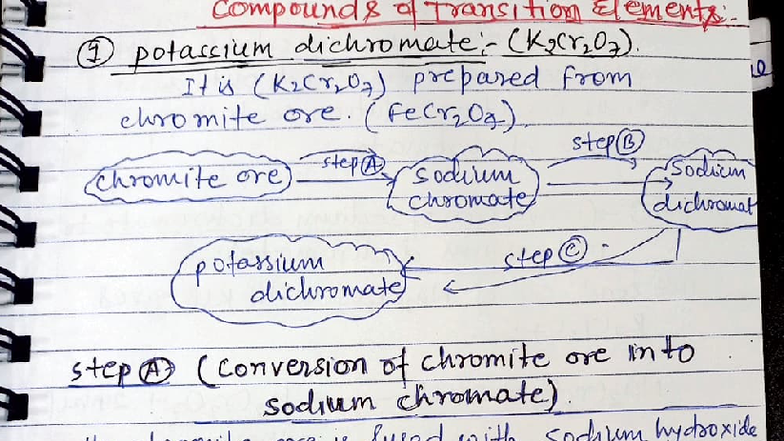 Compounds of Transition Elements:-
① potassium dichromate:- (K2Cr2O7).
It is (K2Cr2O7) prepared from
chromite ore. (FeCr2O4)
chromite ore step Ⓐ sodium chromate step Ⓑ sodium dichromat
potassium dichromate step Ⓒ
step Ⓐ (conversion of chromite ore into
sodium chromate).
chromite ore is fused with sodium hydroxide